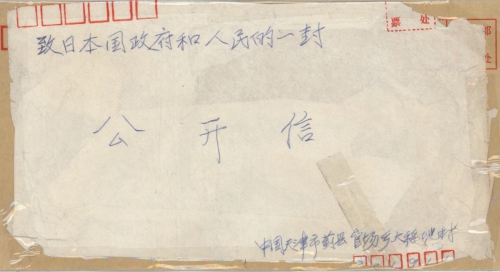 票 处
邮
处
致日本国政府和人民的一封
公开信
中国天津市蓟县官场乡大
村